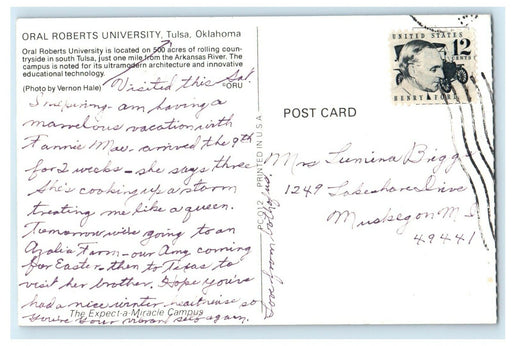 ORAL ROBERTS UNIVERSITY, Tulsa, Oklahoma
Oral Roberts University is located on 500 acres of rolling coun-
tryside in south Tulsa, just one mile from the Arkansas River. The
campus is noted for its ultramodern architecture and innovative
educational technology.
(Photo by Vernon Hale)
©ORU
Visited this Sat
Inspiring - am having a
marvelous vacation with
Fannie Mae - arrived the 9th
for 2 weeks - she says three
She's cooking up a storm
treating me like a queen.
Tomorrow we're going to an
Azalia Farm - our Amy coming
for Easter - then to Texas to
visit her brother. Hope you've
had a nice winter
so
you're your
again.
The Expect-a-Miracle Campus
Love from
PC012 PRINTED IN U.S.A.
POST CARD
UNITED STATES
12
CENTS
HENRY FORD
Mrs Lumina Briggs
1249 Lakeshore Drive
Muskegon M I
49441